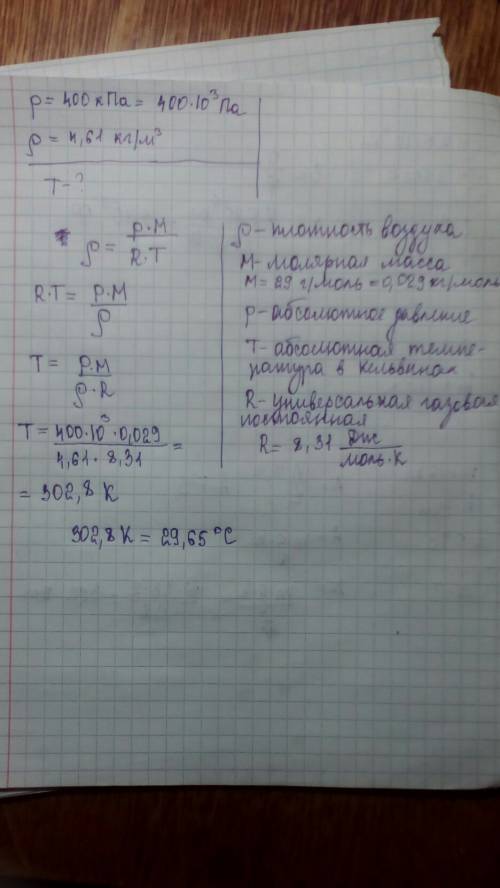 p = 400 кПа = 400·10³ Па
ρ = 4,61 кг/м³
T - ?
ρ = p·M / R·T
R·T = p·M / ρ
T = p·M / ρ·R
T = 400·10³·0,029 / 4,61·8,31 =
= 302,8 К
302,8 К = 29,65 °C
ρ - плотность воздуха
M - молярная масса
M = 29 г/моль = 0,029 кг/моль
p - абсолютное давление
T - абсолютная темпе-
ратура в кельвинах
R - универсальная газовая
постоянная
R = 8,31 Дж / моль·К